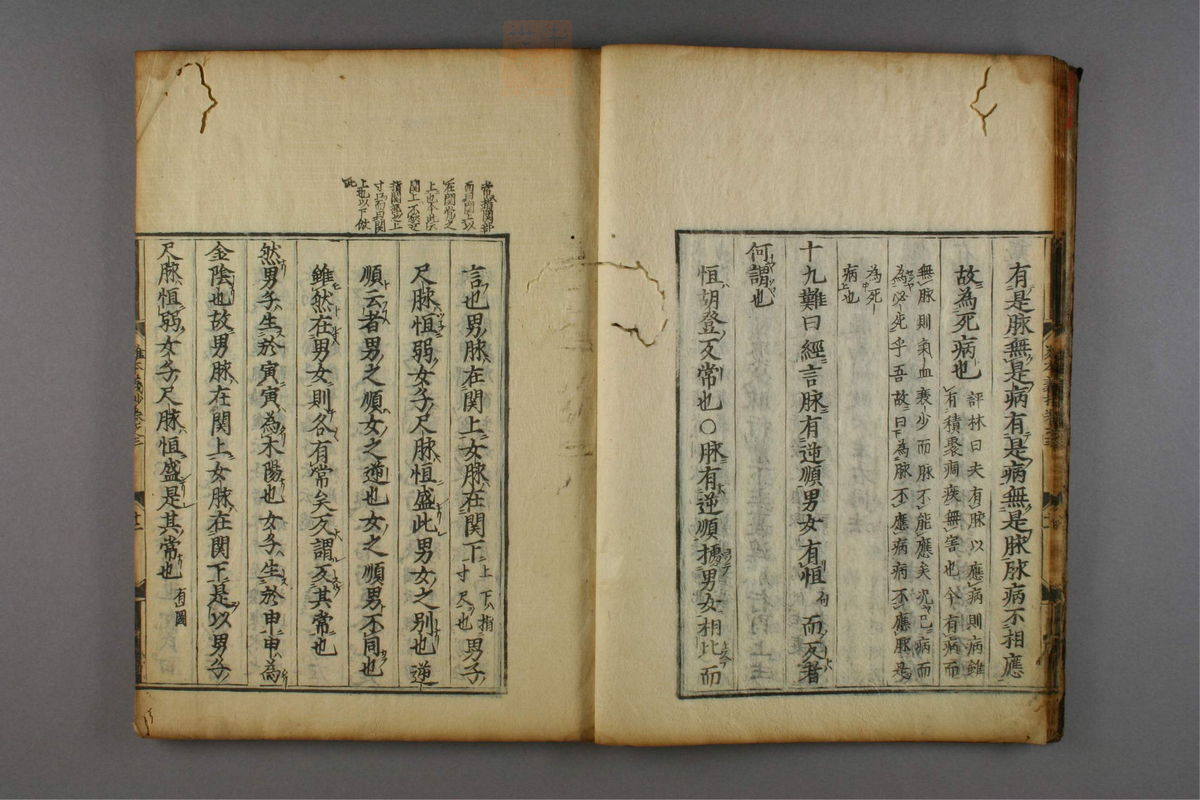 有是脉無是病有是病無是脉脉病不相應
故為死病也
評林曰夫有脉以應病則病雖
有積聚痼疾無害也今有病而
無脉則氣血衰少而脉不能應矣况已病而
為必死乎吾故曰為脉不應病病不應脉是
為死
病上也
十九難曰經言脉有逆順男女有恒而反者
何謂也
恒胡登反常也○脉有逆順據男女相比而
言也男脉在関上女脉在関下
上下指
寸尺也
男子
尺脉恒弱女子尺脉恒盛此男女之别也逆
順云者男之順女之逆也女之順男不同也
雖然在男女則各有常矣反謂反其常也
然男子生於寅寅為木陽也女子生於申申為
金陰也故男脉在関上女脉在関下是以男子
尺脉恒弱女子尺脉恒盛是其常也
有圖
常據関部
上也以下倣
此